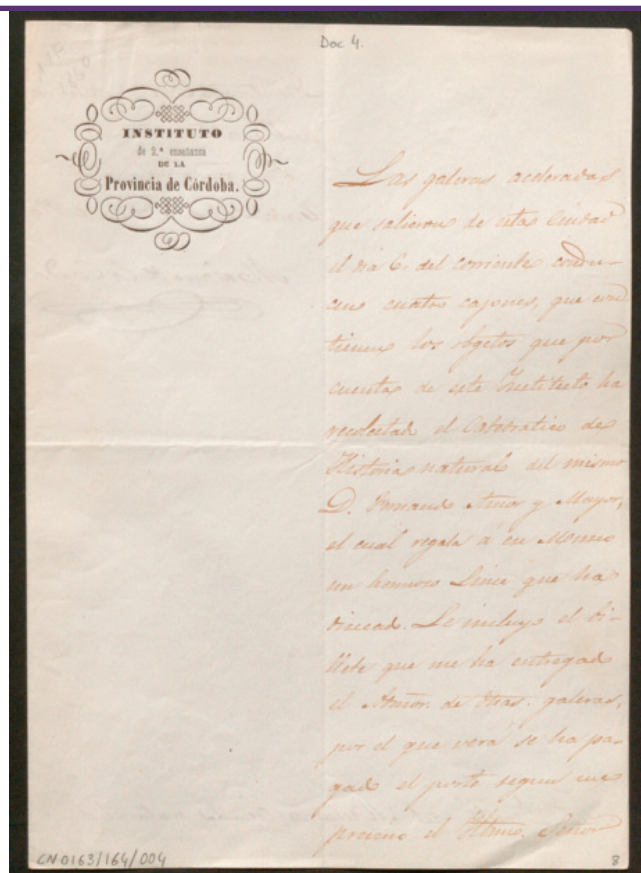 Doc 4.
INSTITUTO
de 2.ª enseñanza
DE LA
Provincia de Córdoba.
Las galeras aceleradas
que salieron de esta Ciudad
el dia 6 del corriente condu-
cen cuatro cajones, que con
tienen los objetos que por
cuenta de este Instituto ha
recolectado el Catedratico de
Historia natural del mismo
D. Fernando Amor y Mayor,
el cual regala á ese Museo
un hermoso Lince que ha
disecado. Le incluyo el bi-
llete que me ha entregado
el Admor. de dhas. galeras,
por el que verá se ha pa-
gado el porte segun me
previene el Iltmo. Señor
CN0163/164/004
8